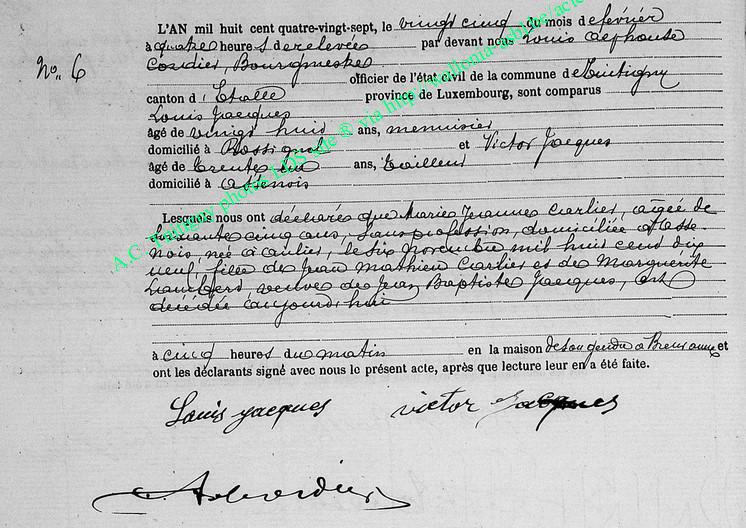 L'AN mil huit cent quatre-vingt-sept, le vingt cinq du mois de février
No. 6
à quatre heures de relevée par devant nous Louis Alphonse
Cordier, Bourgmestre
officier de l'état civil de la commune de Tintigny
canton d'Etalle province de Luxembourg, sont comparus
Louis Jacques
âgé de vingt huit ans, menuisier
domicilié à Rossignol et Victor Jacques
âgé de trente ans, tailleur
domicilié à Assenois
Lesquels nous ont déclaré que Marie Jeanne Carlier, agée de
soixante cinq ans, sans profession, domiciliée à Asse-
nois, née à anlier, le six novembre mil huit cent dix
neuf, fille de Jean Mathieu Carlier et de Marguerite
Lambert, veuve de Jean Baptiste Jacques, est
décédée aujourd'hui
à cinq heures du matin en la maison de son gendre à et
ont les déclarants signé avec nous le présent acte, après que lecture leur en a été faite.
Louis Jacques Victor Jacques
A Cordier
A.C. Tintigny photos LDS site ® via http://wallonia-asbl.be/acte